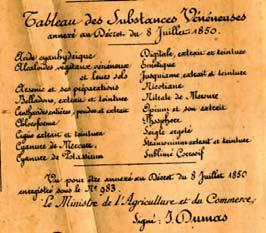 Tableau des Substances Vénéneuses
annexé au Décret du 8 Juillet 1850.
Acide cyanhydrique
Alcaloïdes végétaux vénéneux
et leurs sels
Arsenic et ses préparations
Belladone, extrait et teinture
Cantharides entières, poudre et extrait
Chloroforme
Ciguë extrait et teinture
Cyanure de Mercure
Cyanure de Potassium
Digitale, extrait et teinture
Émétique
Jusquiame extrait et teinture
Nicotiane
Nitrate de Mercure
Opium et son extrait
Phosphore
Seigle ergoté
Stramonium extrait et teinture
Sublimé Corrosif
Vu pour être annexé au Décret du 8 Juillet 1850
enregistré sous le No 983.
Le Ministre de l'Agriculture et du Commerce,
Signé : J. Dumas